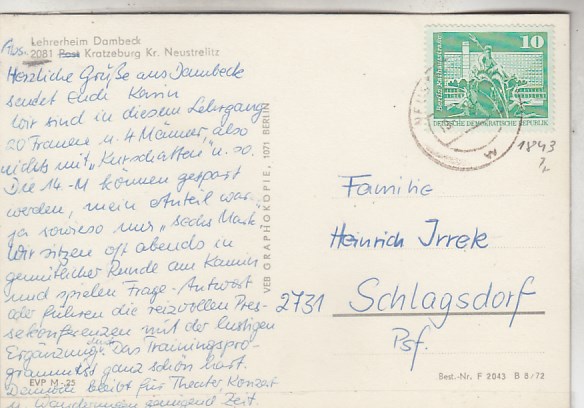 Aus
Lehrerheim Dambeck
2081 Post Kratzeburg Kr. Neustrelitz
Herzliche Grüße aus Dambeck
sendet Euch Karin
Wir sind in diesem Lehrgang
20 Frauen u. 4 Männer, also
nichts mit „Kurschatten" u. so.
Die 14.-M können gespart
werden, mein Anteil war
ja sowieso nur „sechs Mark".
Wir sitzen oft abends in
gemütlicher Runde am Kamin
und spielen Frage-Antwort
oder führen die reizvollen Pres-
sekonferenzen mit der lustigen
Ergänzung. Das Trainingspro-
gramm ist ganz schön hart.
Dennoch bleibt für Theater, Konzert
u. Wanderungen genügend Zeit.
EVP M -.25
VEB GRAPHOKOPIE, 1071 BERLIN
10
Berlin, Rathausstrasse
DEUTSCHE DEMOKRATISCHE REPUBLIK
W
1843
Familie
Heinrich Irrek
2731 Schlagsdorf
Psf.
Best.-Nr. F 2043 B 8/72